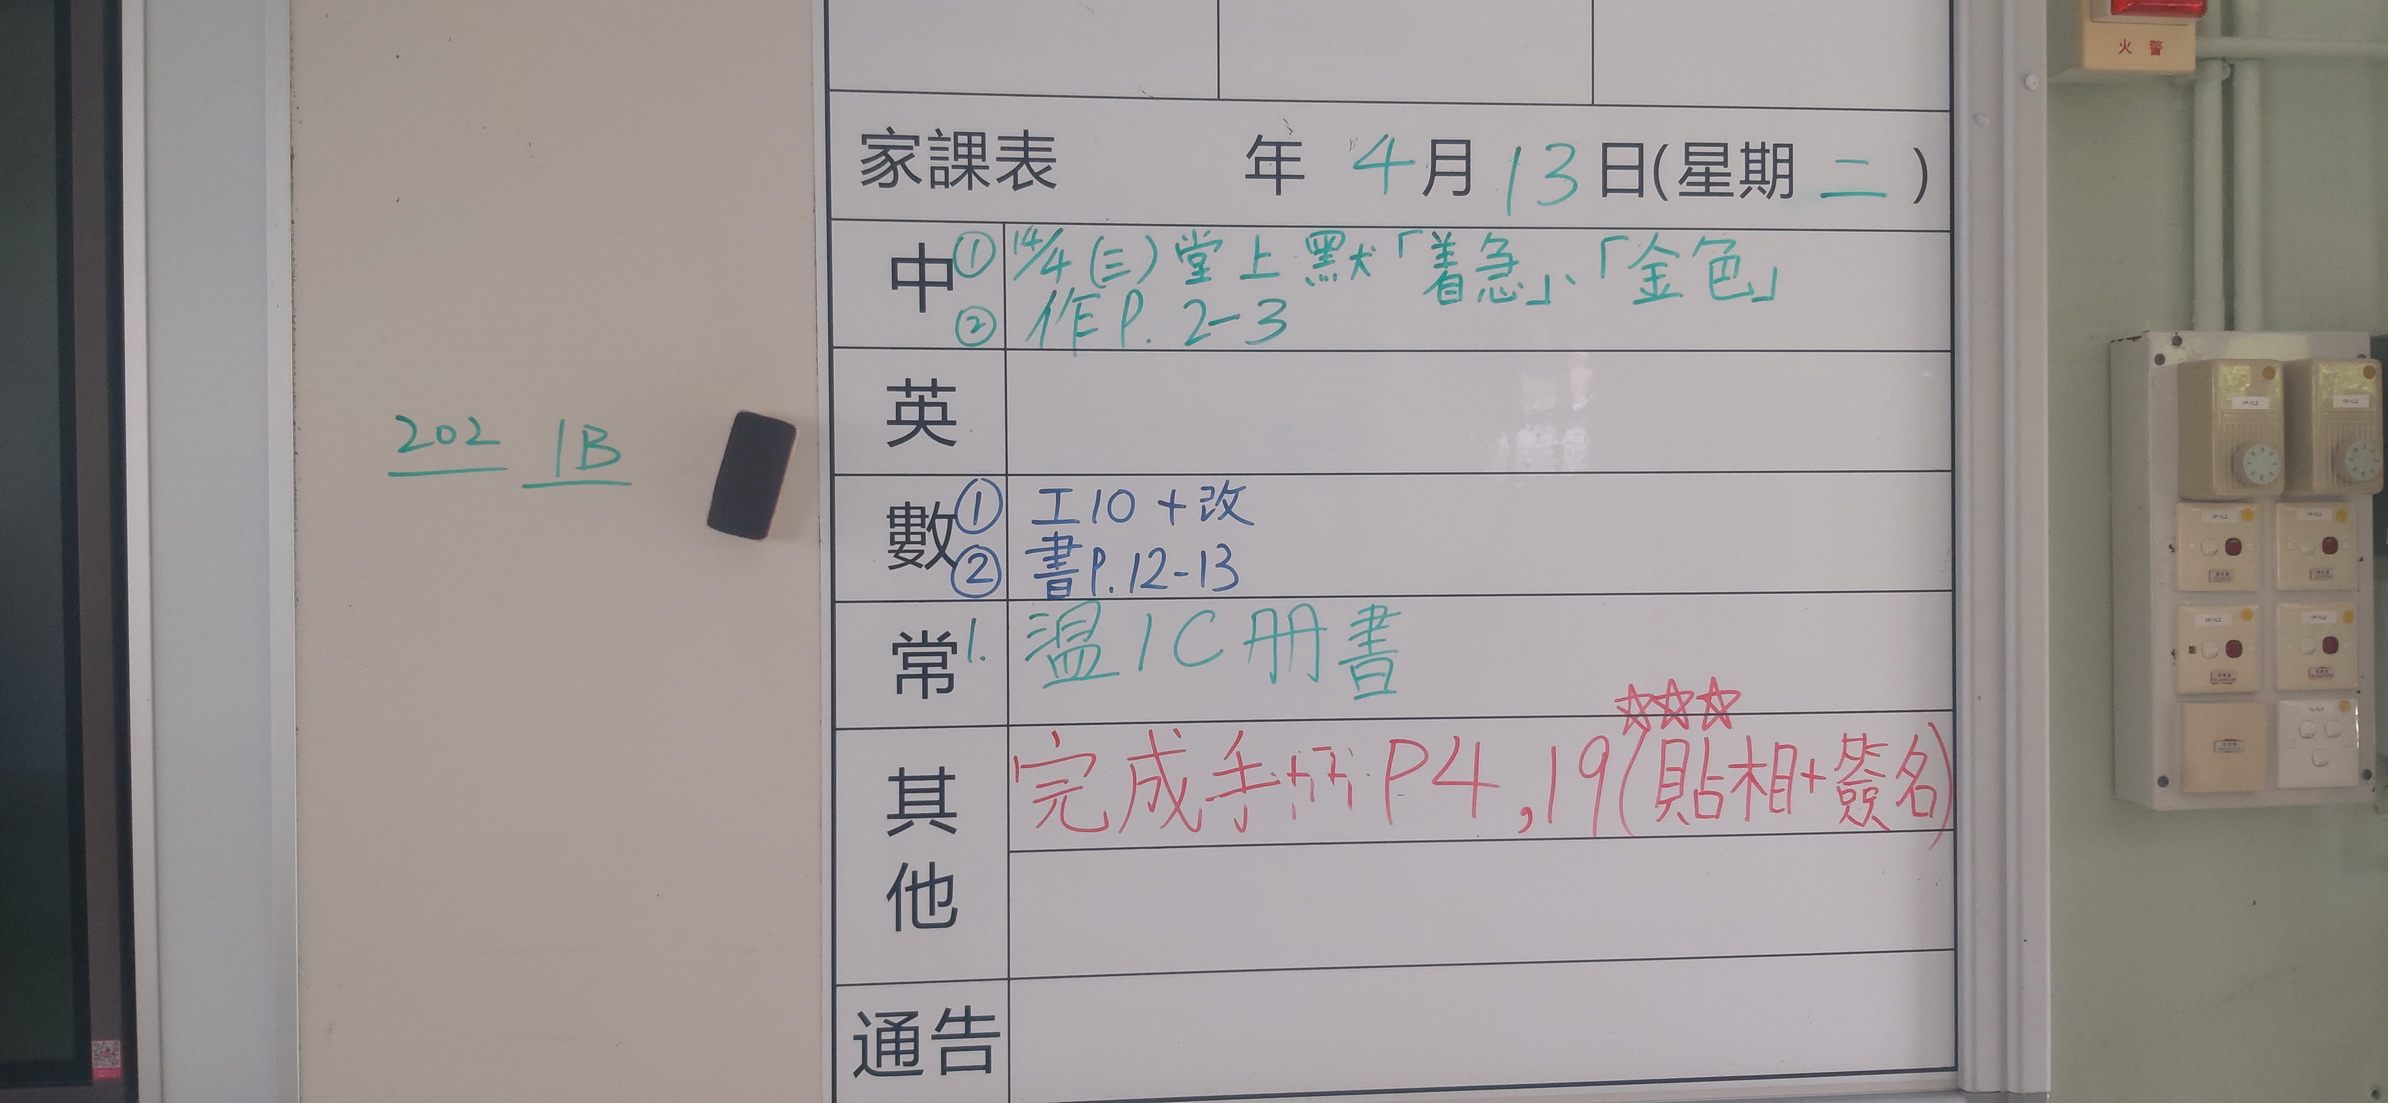 火警
家課表 年 4月 13日(星期 二 )
中 ① 14/4 (三) 堂上默「着急」、「金色」
② 作P. 2-3
英
202 1B
數 ① 工10 + 改
② 書P. 12-13
常 1. 溫1C冊書
其他 完成手冊P4,19(貼相+簽名)
通告